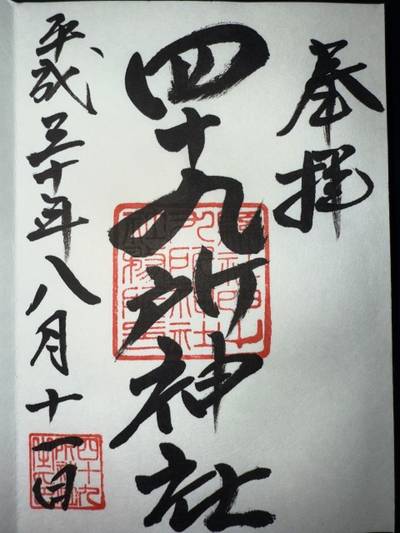 奉拝
四十九所神社
平成三十年八月十一日